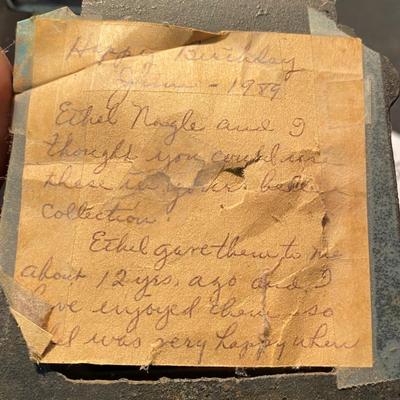 Happy Birthday
June - 1989
Ethel Nagle and I
thought you could use
these in your
collection.
Ethel gave them to me
about 12 yrs. ago and I
have enjoyed them so
was very happy when